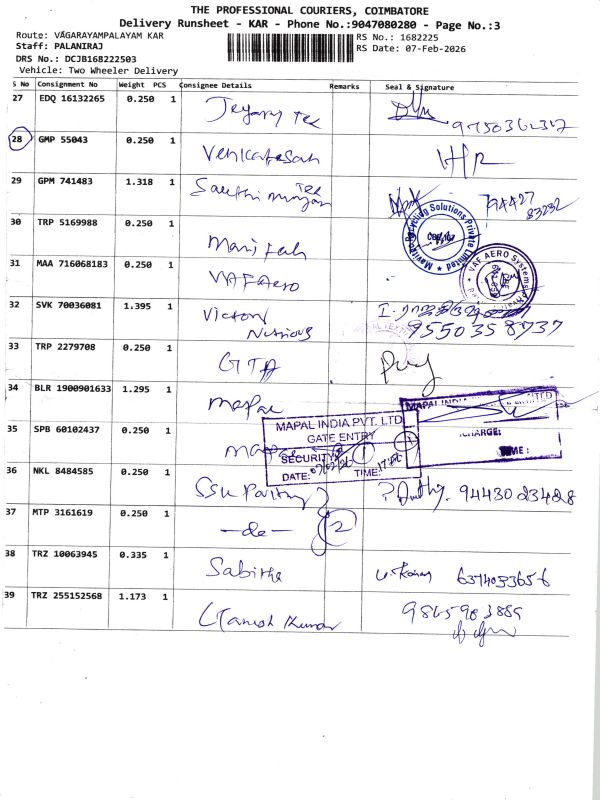 THE PROFESSIONAL COURIERS, COIMBATORE
Delivery Runsheet - KAR - Phone No.:9047080280 - Page No.:3
Route: VAGARAYAMPALAYAM KAR
RS No.: 1682225
Staff: PALANIRAJ
RS Date: 07-Feb-2026
DRS No.: DCJB168222503
Vehicle: Two Wheeler Delivery
S No Consignment No Weight PCS Consignee Details Remarks Seal & Signature
27 EDQ 16132265 0.250 1
28 GMP 55043 0.250 1 Venkatesan
29 GPM 741483 1.318 1 79427 83232
30 TRP 5169988 0.250 1
Recycling Solutions Private Limited
31 MAA 716068183 0.250 1 VAF Aero
VAF AERO Systems
32 SVK 70036081 1.395 1 Victory 9550358737
33 TRP 2279708 0.250 1 GTA
34 BLR 1900901633 1.295 1 mapal
MAPAL INDIA PVT. LTD
GATE ENTRY
SECURITY
DATE: TIME:
CHARGE:
TIME :
35 SPB 60102437 0.250 1 mapal
36 NKL 8484585 0.250 1 9443023428
37 MTP 3161619 0.250 1 -do- 2
38 TRZ 10063945 0.335 1 Sabitha 6374033656
39 TRZ 255152568 1.173 1 Kumar 9865983889